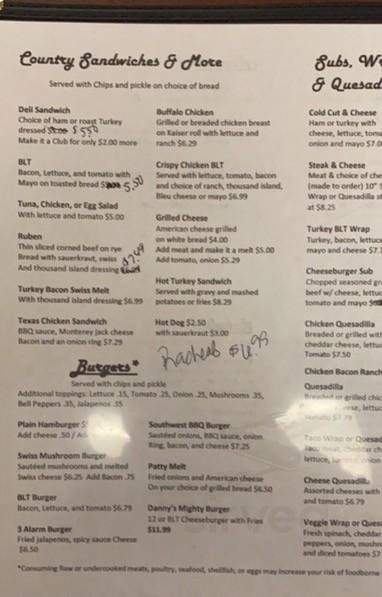 Country Sandwiches & More
Served with Chips and pickle on choice of bread
Deli Sandwich
Choice of ham or roast Turkey
dressed $5.00 $ 5.50
Make it a Club for only $2.00 more
BLT
Bacon, Lettuce, and tomato with
Mayo on toasted bread 5.50
Tuna, Chicken, or Egg Salad
With lettuce and tomato $5.00
Ruben
Thin sliced corned beef on rye
Bread with sauerkraut, swiss $7.49
And thousand island dressing
Turkey Bacon Swiss Melt
With thousand island dressing $6.99
Texas Chicken Sandwich
BBQ sauce, Monterey jack cheese
Bacon and an onion ring $7.29
Buffalo Chicken
Grilled or breaded chicken breast
on Kaiser roll with lettuce and
ranch $6.29
Crispy Chicken BLT
Served with lettuce, tomato, bacon
and choice of ranch, thousand island,
Bleu cheese or mayo $6.99
Grilled Cheese
American cheese grilled
on white bread $4.00
Add meat and make it a melt $5.00
Add tomato, onion $5.29
Hot Turkey Sandwich
Served with gravy and mashed
potatoes or fries $8.29
Hot Dog $2.50
with sauerkraut $3.00
Rachels $6.99
Burgers*
Served with chips and pickle
Additional toppings: Lettuce .15, Tomato .25, Onion .25, Mushrooms .35,
Bell Peppers .35, Jalapenos .35
Plain Hamburger
Add cheese .50 /
Swiss Mushroom Burger
Sautéed mushrooms and melted
Swiss cheese $6.25 Add Bacon .75
BLT Burger
Bacon, Lettuce, and tomato $6.79
3 Alarm Burger
Fried jalapenos, spicy sauce Cheese
$6.50
Southwest BBQ Burger
Sautéed onions, BBQ sauce, onion
Ring, bacon, and cheese $7.25
Patty Melt
Fried onions and American cheese
On your choice of grilled bread $6.50
Danny's Mighty Burger
12 oz BLT Cheeseburger with Fries
$11.99
Subs,
& Quesad
Cold Cut & Cheese
Ham or turkey with
cheese, lettuce, toma
onion and mayo $7.0
Steak & Cheese
Meat & choice of che
(made to order) 10"
Wrap or Quesadilla st
at $8.25
Turkey BLT Wrap
Turkey, bacon, lettuce
mayo and cheese $7.
Cheeseburger Sub
Chopped seasoned gr
beef w/ cheese, lettuc
tomato and mayo
Chicken Quesadilla
Breaded or grilled wit
cheddar cheese, lettuc
Tomato $7.50
Chicken Bacon Ranch
Quesadilla
Breaded or grilled chic
cheese, lettuc
Taco Wrap or Quesad
cheddar ch
lettuce,
Cheese Quesadilla
Assorted cheeses with
and tomato $6.79
Veggie Wrap or Quesa
Fresh spinach, cheddar
peppers, onion, mushro
and sliced tomatoes $7
*Consuming Raw or undercooked meats, poultry, seafood, shellfish, or eggs may increase your risk of foodborne